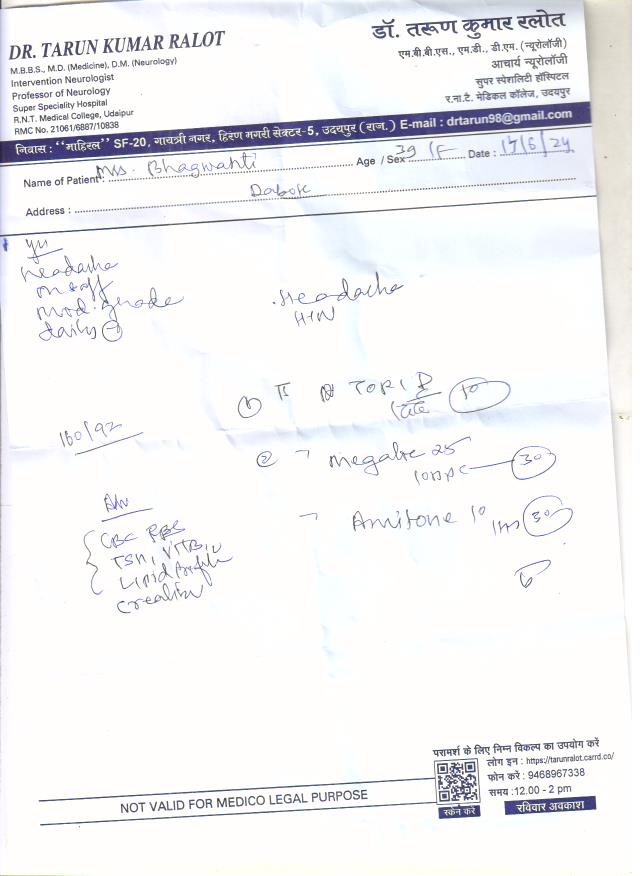 DR. TARUN KUMAR RALOT
M.B.B.S., M.D. (Medicine), D.M. (Neurology)
Intervention Neurologist
Professor of Neurology
Super Speciality Hospital
R.N.T. Medical College, Udaipur
RMC No. 21061/6887/10838
डॉ. तरूण कुमार रलोत
एम.बी.बी.एस., एम.डी., डी.एम. (न्यूरोलॉजी)
आचार्य न्यूरोलॉजी
सुपर स्पेशलिटी हॉस्पिटल
र.ना.टै. मेडिकल कॉलेज, उदयपुर
निवास : "माहिरल" SF-20, गायत्री नगर, हिरण मगरी सेक्टर-5, उदयपुर (राज.) E-mail : drtarun98@gmail.com
Name of Patient: Mrs. Bhagwanti Age / Sex 39 / F Date : /24
Address : Dabok
Headache
on & off
mod. grade
daily
Headache
HTN
160/92
① 10
② Megalie 25
30
Amitone 10 30
CBC RBS
TSH, Vit B12
Lipid Profile
Creatin
परामर्श के लिए निम्न विकल्प का उपयोग करें
लोग इन : https://tarunralot.carrd.co/
फोन करें : 9468967338
समय :12.00 - 2 pm
स्कैन करे
रविवार अवकाश
NOT VALID FOR MEDICO LEGAL PURPOSE